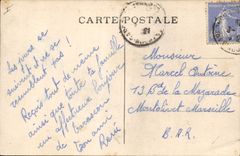 CARTE POSTALE
Les jours se
suivent et se
ressemblent pas !
Reçois tout de même
ainsi que toute ta famille
un affectueux bonjour
de Tarascon
Ton ami
René
Monsieur
Marcel Antoine
13, Bd de la Mazarade
Montolivet Marseille
B.d.R.